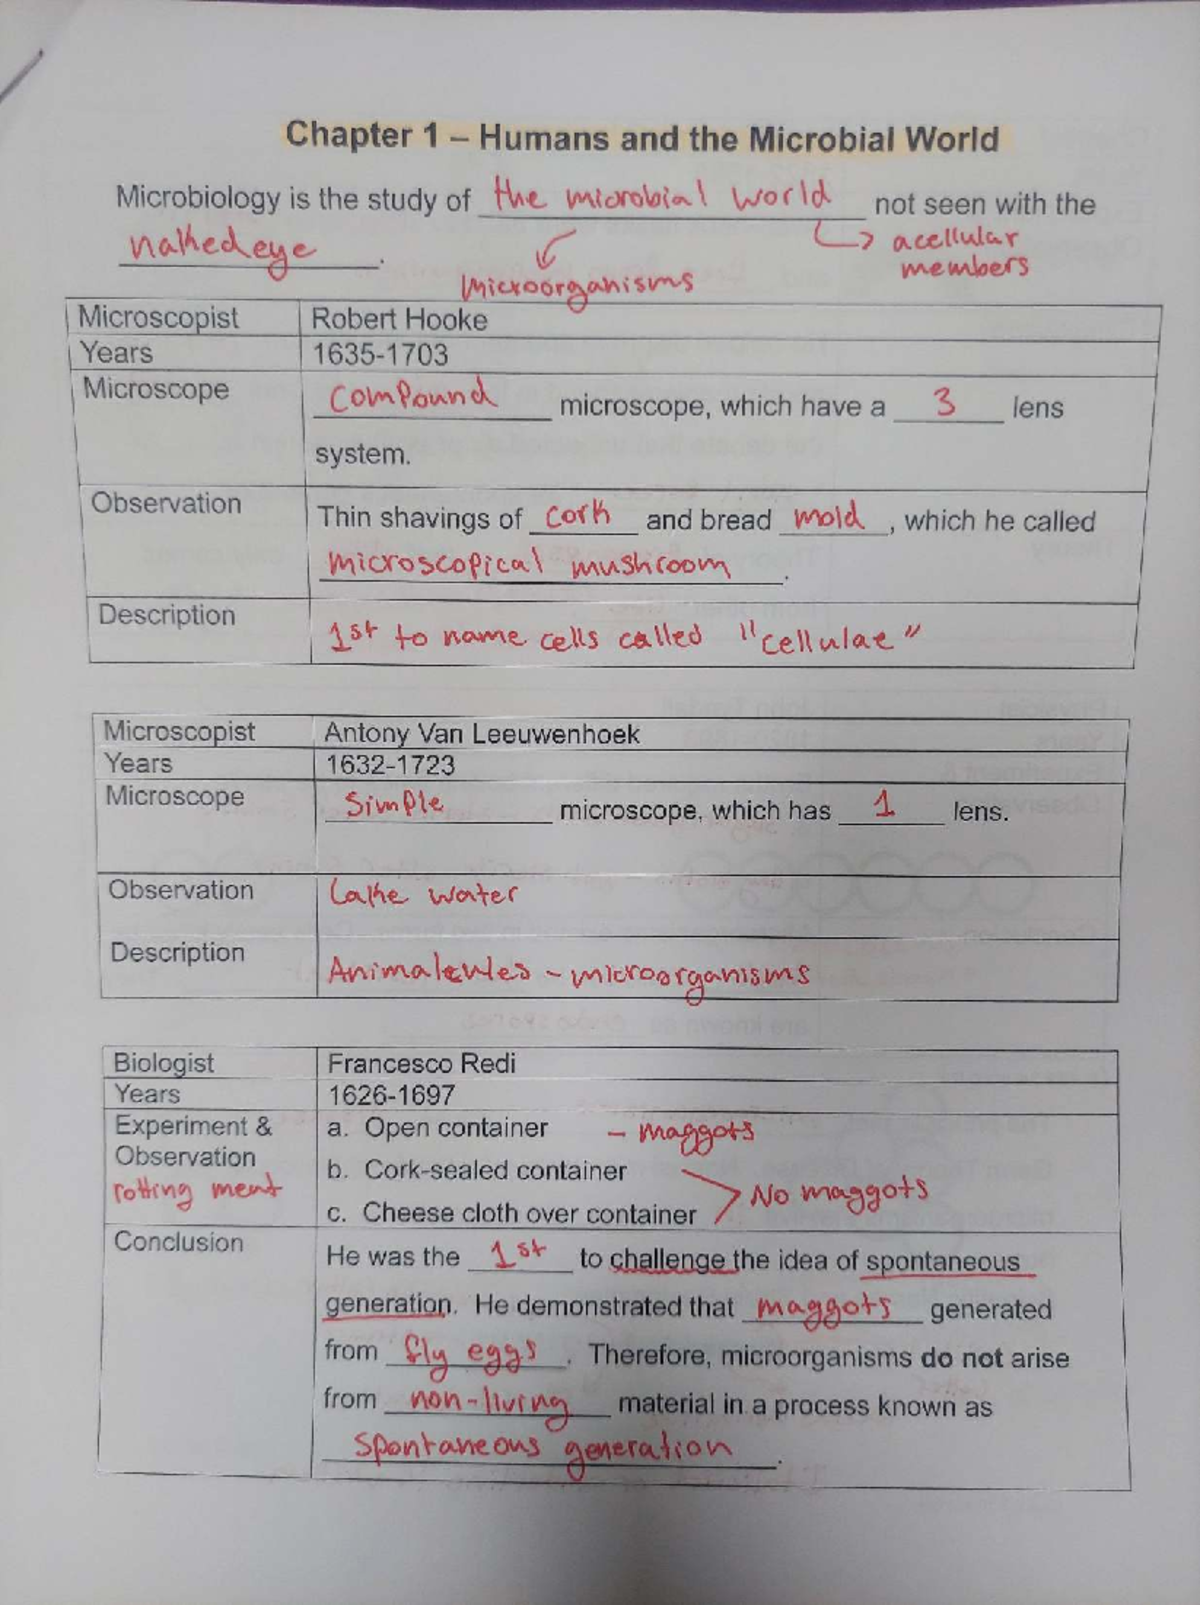 Chapter 1 – Humans and the Microbial World
Microbiology is the study of the microbial world not seen with the
naked eye.
↳ acellular
members
microorganisms
Microscopist Robert Hooke
Years 1635-1703
Microscope compound microscope, which have a 3 lens
system.
Observation Thin shavings of cork and bread mold, which he called
microscopical mushroom.
Description 1st to name cells called "cellulae"
Microscopist Antony Van Leeuwenhoek
Years 1632-1723
Microscope Simple microscope, which has 1 lens.
Observation Lake water
Description Animalcules - microorganisms
Biologist Francesco Redi
Years 1626-1697
Experiment & a. Open container – maggots
Observation b. Cork-sealed container
rotting meat No maggots
c. Cheese cloth over container
Conclusion He was the 1st to challenge the idea of spontaneous
generation. He demonstrated that maggots generated
from fly eggs. Therefore, microorganisms do not arise
from non-living material in a process known as
spontaneous generation.